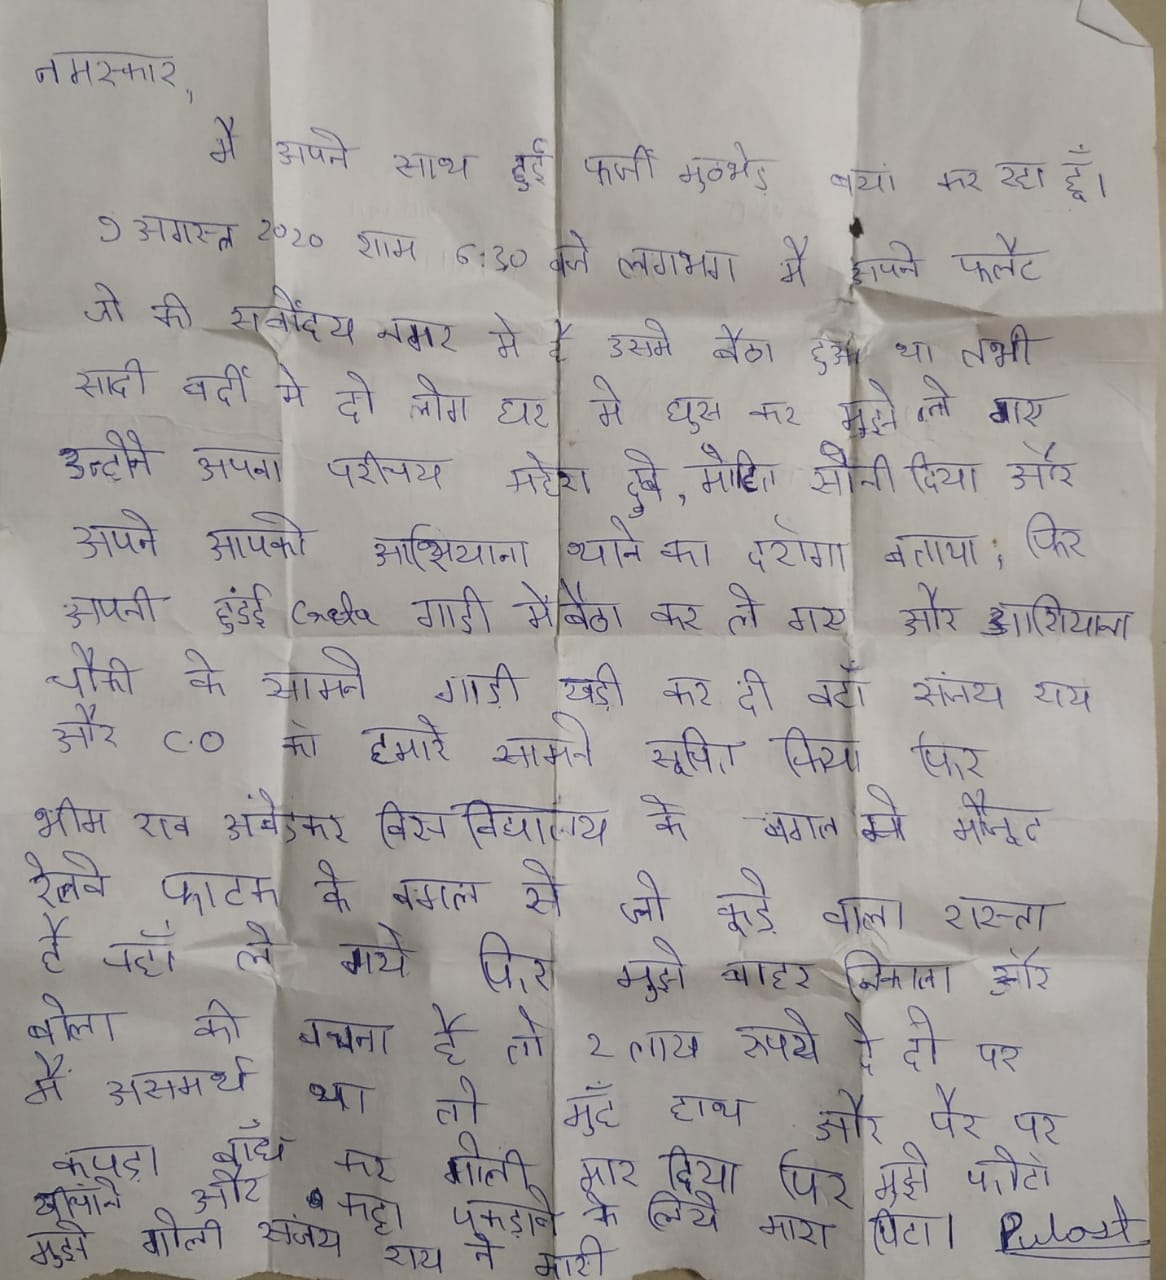 नमस्कार,
मै अपने साथ हुई फर्जी मुठभेड़ बयां कर रहा हूँ।
9 अगस्त 2020 शाम 6:30 बजे लगभग मै अपने फ्लैट
जो की सर्वोदय नगर मे है उसमे बैठा हुआ था तभी
सादी वर्दी मे दो लोग घर मे घुस कर मुझे ले गए
उन्होने अपना परीचय महेश दुबे, मोहित सोनी दिया और
अपने आपको आशियाना थाने का दरोगा बताया, फिर
अपनी हुंडई Creta गाड़ी में बैठा कर ले गए और आशियाना
चौकी के सामने गाड़ी खड़ी कर दी वहाँ संजय राय
और C.O को हमारे सामने सूचित किया फिर
भीम राव अंबेडकर विस विद्यालय के बगल मे मौजूद
रेलवे फाटक के बगल से जो कूड़े वाला रास्ता
है वहाँ ले गये फिर मुझे बाहर निकाला और
बोला की बचना है तो 2 लाख रुपये दे दो पर
मैं असमर्थ था तो मुहँ हाथ और पैर पर
कपड़ा बाँध कर गोली मार दिया फिर मुझे फोटो
खीचाने और कट्टा पकड़ाने के लिये मारा पिटा। Pulast
मुझे गोली संजय राय ने मारी